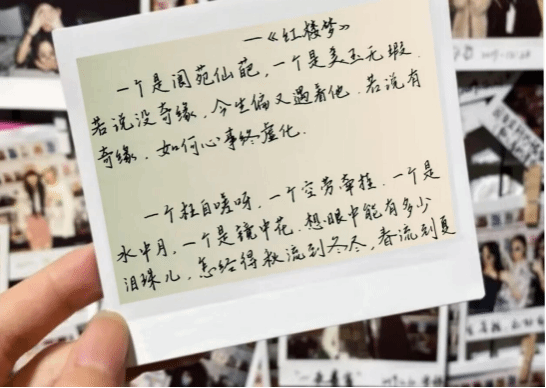 —《红楼梦》
一个是阆苑仙葩，一个是美玉无瑕.
若说没奇缘，今生偏又遇着他.若说有
奇缘，如何心事终虚化.
一个枉自嗟呀，一个空劳牵挂.一个是
水中月，一个是镜中花.想眼中能有多少
泪珠儿，怎经得秋流到冬尽，春流到夏